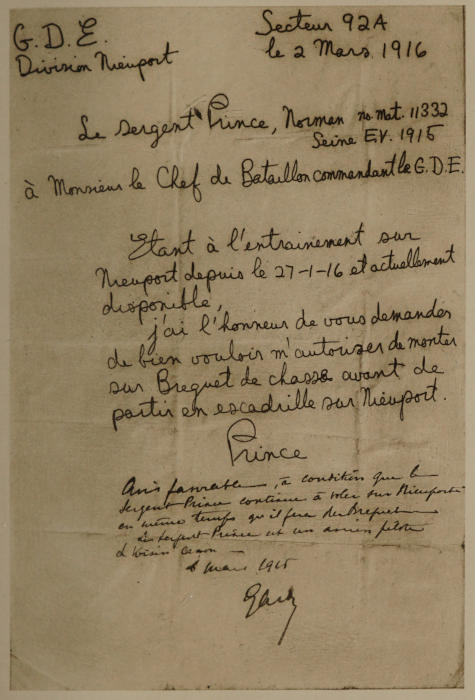 G.D.E.
Division Nieuport
Secteur 92A
le 2 Mars 1916
Le sergent Prince, Norman no. mat. 11332
Seine EV. 1915
à Monsieur le Chef de Bataillon commandant le G.D.E.
Etant à l'entrainement sur
Nieuport depuis le 27-1-16 et actuellement
disponible,
j'ai l'honneur de vous demander
de bien vouloir m'autoriser de monter
sur Breguet de chasse avant de
partir en escadrille sur Nieuport.
Prince
Avis favorable, à condition que le
sergent Prince continue à voler sur Nieuport
en même temps qu'il fera du Breguet
Le sergent Prince est un ancien pilote
de Voisin canon
Mars 1916